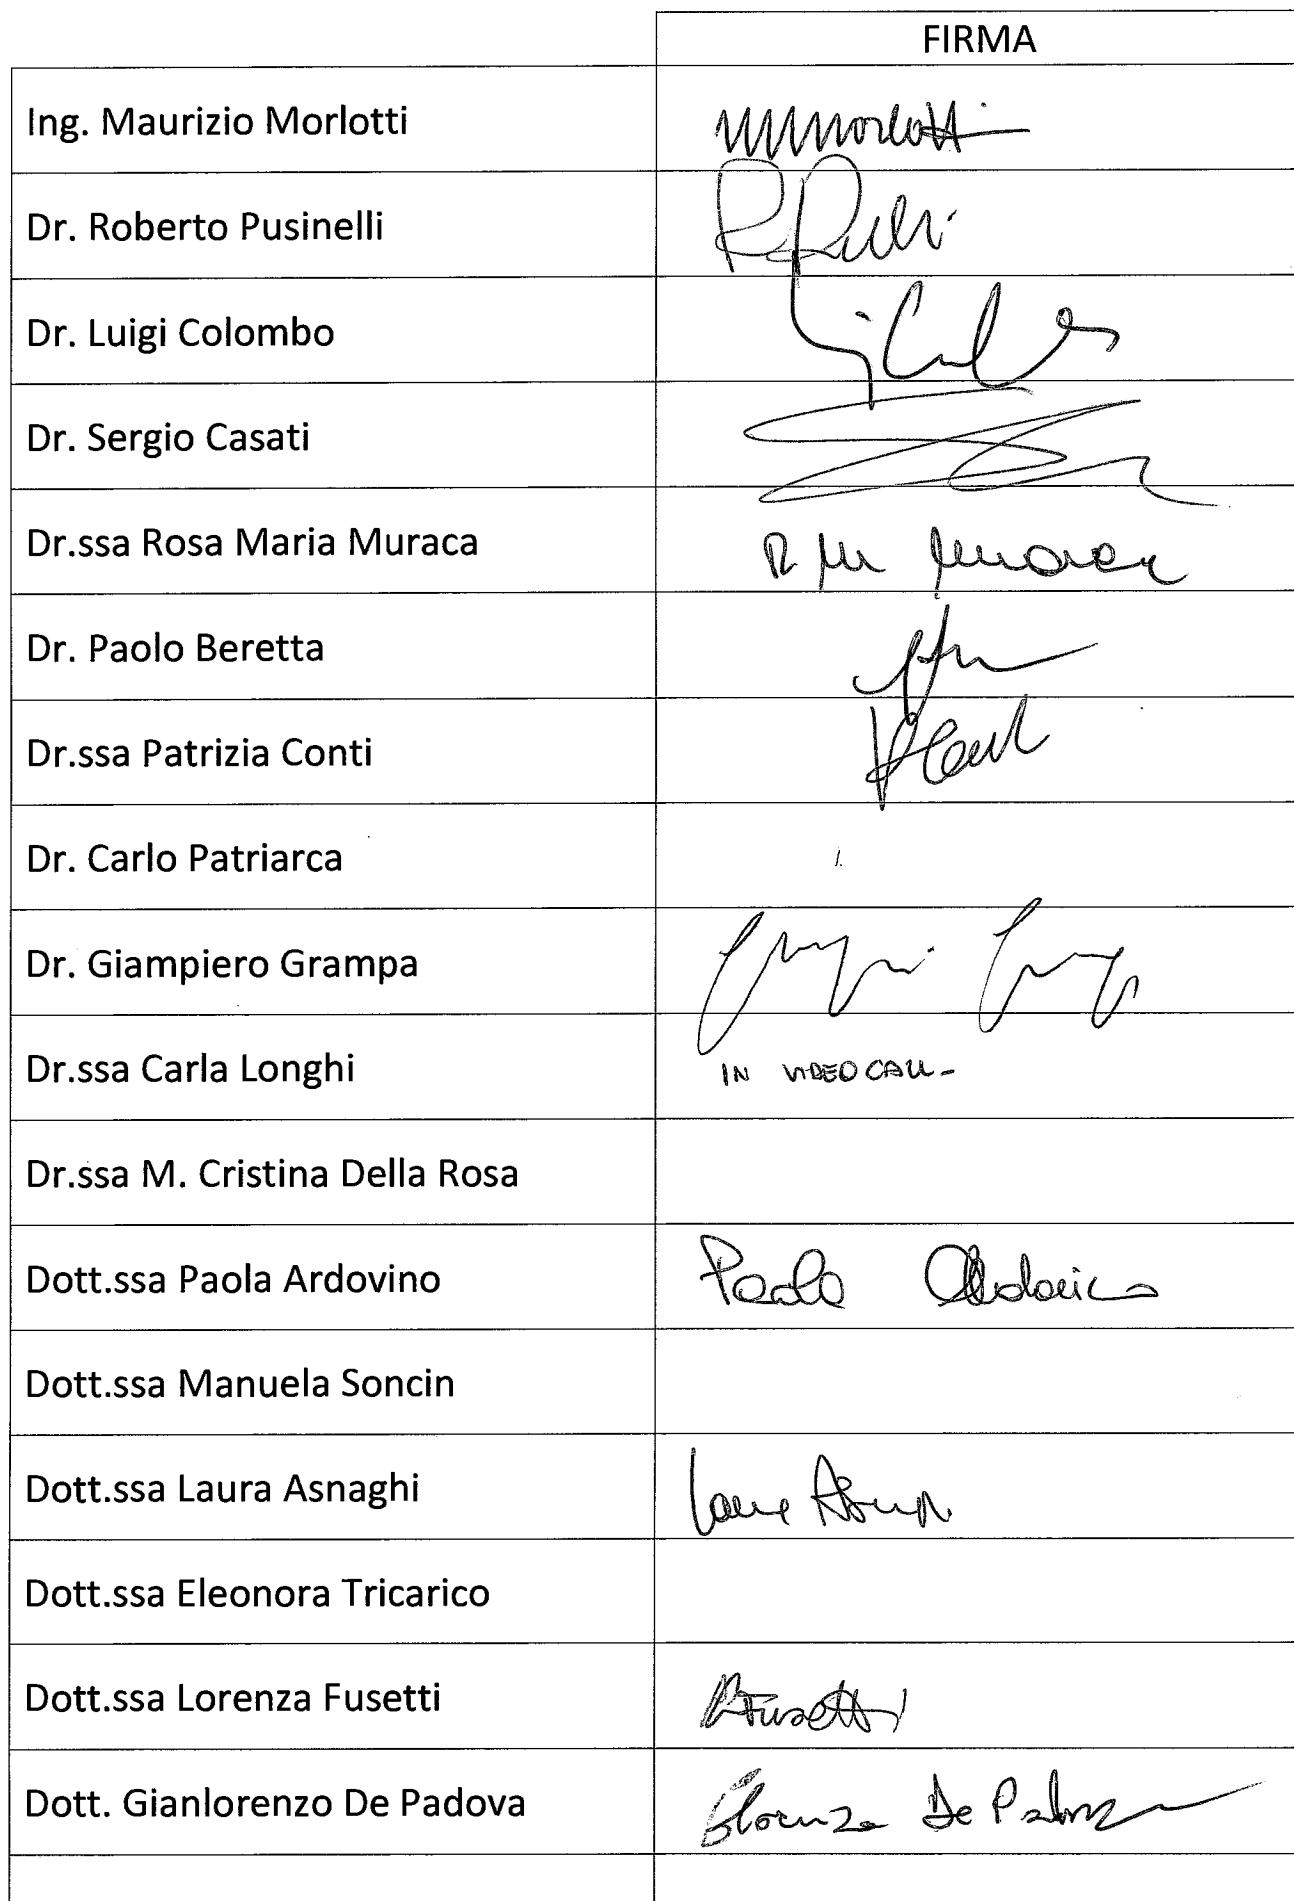 FIRMA
Ing. Maurizio Morlotti MMorlotti
Dr. Roberto Pusinelli
Dr. Luigi Colombo
Dr. Sergio Casati
Dr.ssa Rosa Maria Muraca R M Muraca
Dr. Paolo Beretta
Dr.ssa Patrizia Conti
Dr. Carlo Patriarca
Dr. Giampiero Grampa
Dr.ssa Carla Longhi IN VIDEOCALL-
Dr.ssa M. Cristina Della Rosa
Dott.ssa Paola Ardovino Paola Ardovino
Dott.ssa Manuela Soncin
Dott.ssa Laura Asnaghi
Dott.ssa Eleonora Tricarico
Dott.ssa Lorenza Fusetti LFusetti
Dott. Gianlorenzo De Padova